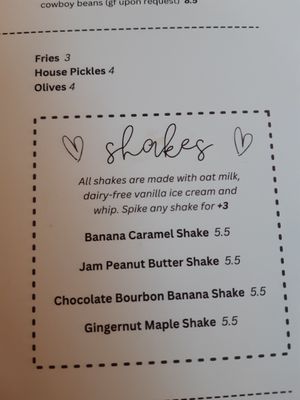 cowboy beans (gf upon request) 8.5
Fries 3
House Pickles 4
Olives 4
shakes
All shakes are made with oat milk,
dairy-free vanilla ice cream and
whip. Spike any shake for +3
Banana Caramel Shake 5.5
Jam Peanut Butter Shake 5.5
Chocolate Bourbon Banana Shake 5.5
Gingernut Maple Shake 5.5